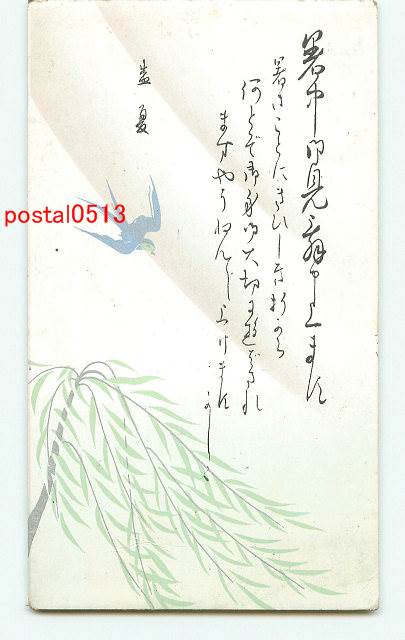 暑中御見舞申上ます
暑さことにきびしき折から
何とぞ御身御大切に遊ばされ
ますやうねんじ上げます
かしこ
盛夏
postal0513